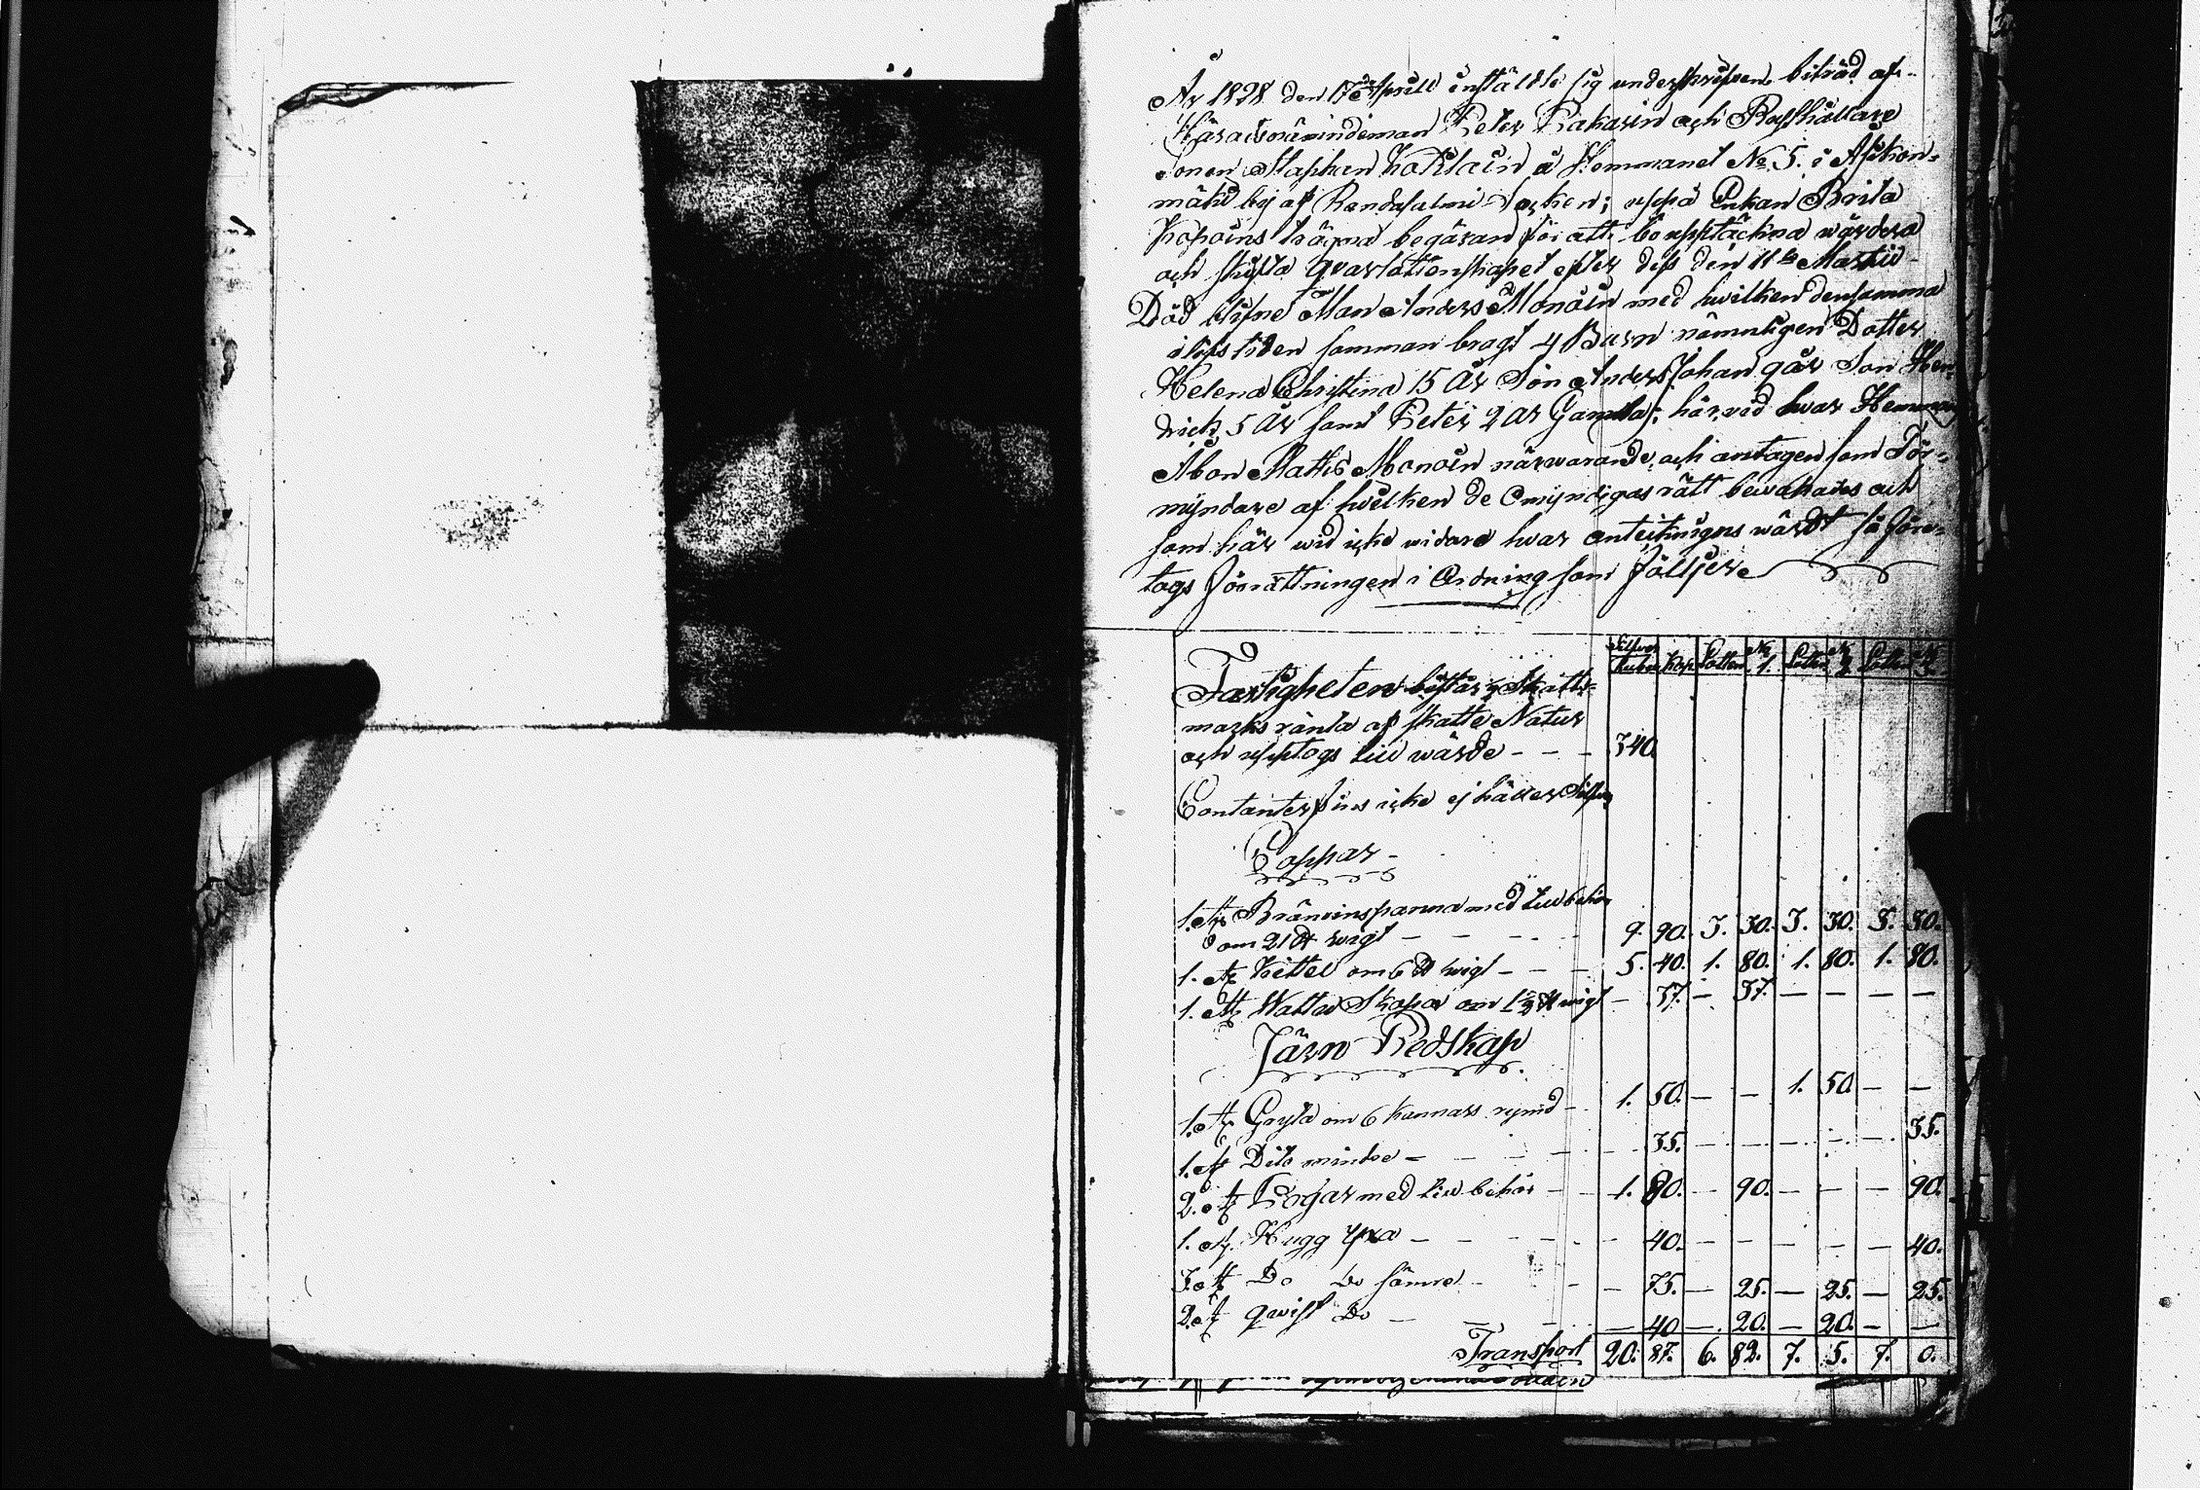 År 1828 den 17de Aprill instäldte sig underskrifven biträd af
Häradsnämindeman Peter Pakarin och Rusthållare
Sonen Staphan Kokkoin å Hemmanet No 5. i Asikon-
mäki by af Randasalmi Socken; uppå Enkan Brita
Kopoins trägna begäran för att boupptäckna wärdera
och skifta qvarlåtenskapet efter dess den 11te Martii
Död blifne Man Anders Monoin med hwilken densamma
i lifs tiden samman bragt 4 Barn nämnligen Dotter
Helena Christina 15 År Son Anders Johan 9 år Son Hen-
drich 5 År samt Peter 2 År Gamla; härvid hwar Hemmans
Åbon Mattis Monoin närwarande och antagen som För-
myndare af hwilken de Omyndigas rätt bewakades och
som här wid icke vidare hwar anteckningas wärdt så före-
togs förrättningen i Ordning som följer
Silfver
Rubel Kop Lotten No 1. Lotten No 2 Lotten No 3.
Fastigheten består Skatte-
marks ränta af skatte Natur
och upptogs till wärde - - - 340.
Contanter fins icke ej häller Silfver
Coppar
1. st Bränvinspanna med tillbehör
om 21 ℔ wigt - - - 9. 90. 3. 30. 3. 30. 3. 30.
1. st Kittel om 6 ℔ wigt - - - 5. 40. 1. 80. 1. 80. 1. 80.
1. st Wattu Skopa om 1 1/2 ℔ wigt - 37. - 37. - - - -
Järn Redskap
1. st Gryta om 6 kannars rymd - 1. 50. - - 1. 50. - -
1. st Dito mindre - - - - 35. - - - - - 35.
2. st Plogar med till behör - - 1. 80. - 90. - - - 90.
1. st Hugg Yxa - - - - - 40. - - - - - 40.
3. st Do Do sämre - - - 75. - 25. - 25. - 25.
2. st qwist Do - - - - 40 - 20. - 20. - -
Transport 20. 87. 6. 82. 7. 5. 7. 0.